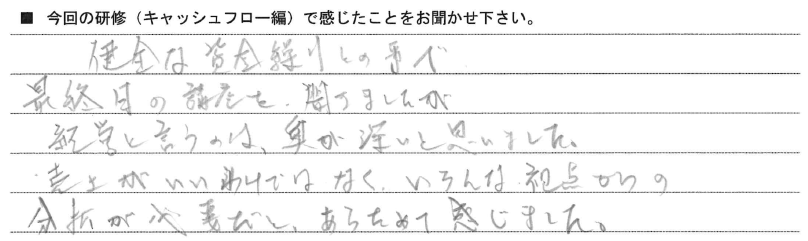 ■ 今回の研修（キャッシュフロー編）で感じたことをお聞かせ下さい。
健全な資金繰りとの事で
最終日の講座を、聞きましたが
経営と言うのは、奥が深いと思いました。
売上がいいわけではなく、いろんな視点からの
分析が必要だと、あらためて感じました。